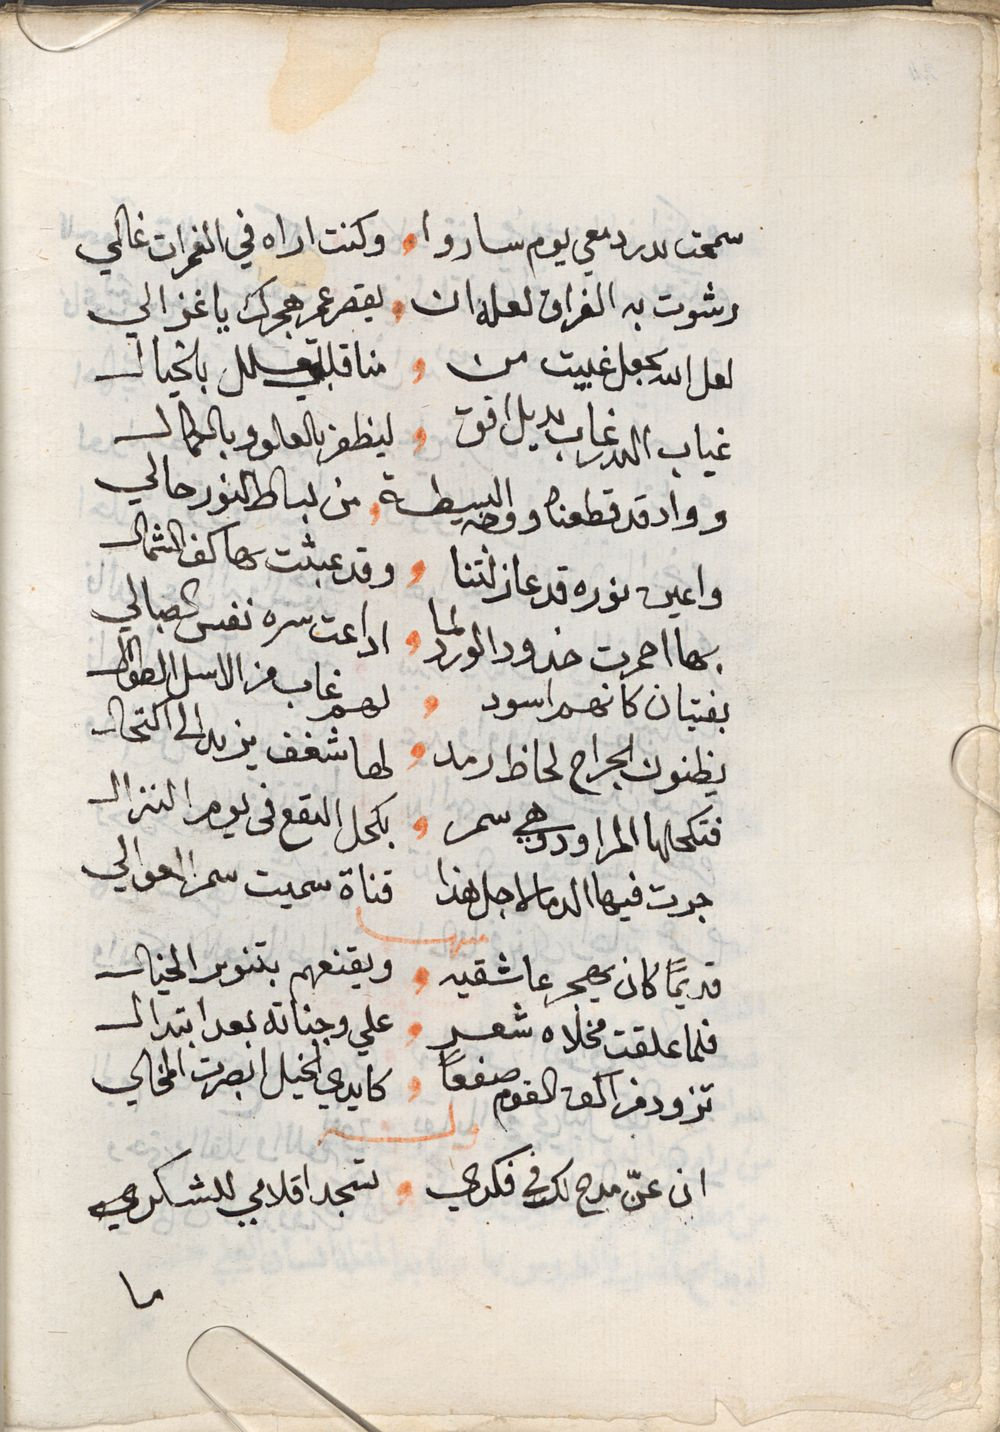 سمحت بدر دمعي يوم ساروا وكنت اراه في الغمرات غالي
رشوت به الفراق لعله ان يقصر عمر هجرك يا غزالي
لعل الله يجعل غيبت من منا قلبي تعلل بالخيال
غياب البدر غاب بديل افق ليظفر بالعلو وبالكمال
وواد قد قطعناه ووجه البسيطة من بساط النور حالي
واعين نوره قد غازلتنا وقد عبثت بها كف الشمال
بها احمرت خدود الورد لما اذاعت سره نفس الصبا لي
بفتيان كانهم اسود لهم غاب من الاسل الطوال
يظنون الجراح لحاظ رمد لها شغف يزيد الى اكتحال
فتكحلها المراود وهي سمر بكحل النقع في يوم النزال
جرت فيها الدما لاجل هذا قناة سميت سمر العوالي
منها
قديمًا كان يهجر عاشقيه ويقنعهم بتنوير الخيال
فلما علقت مخلاه شعر علي وجناته بعد ابتدال
تزود من اكف القوم صفعًا كايدي الخيل ابصرت المخالي
وله
ان عنّ مدح لك في فكري تسجد اقلامي للشكري
ما